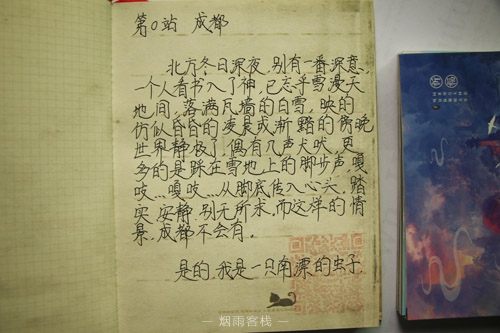 第0站 成都
北方冬日深夜,别有一番深意,
一个人看书入了神,已忘乎雪漫天
地间,落满瓦墙的白雪,映的
仿似昏昏的凌晨或渐黯的傍晚
世界静极了,偶有几声犬吠,更
多的是踩在雪地上的脚步声,嘎
吱…嘎吱…从脚底传入心头,踏
实,安静,别无所求,而这样的情
景,成都不会有。
是的,我是一只南漂的虫子.
— 烟雨客栈 —